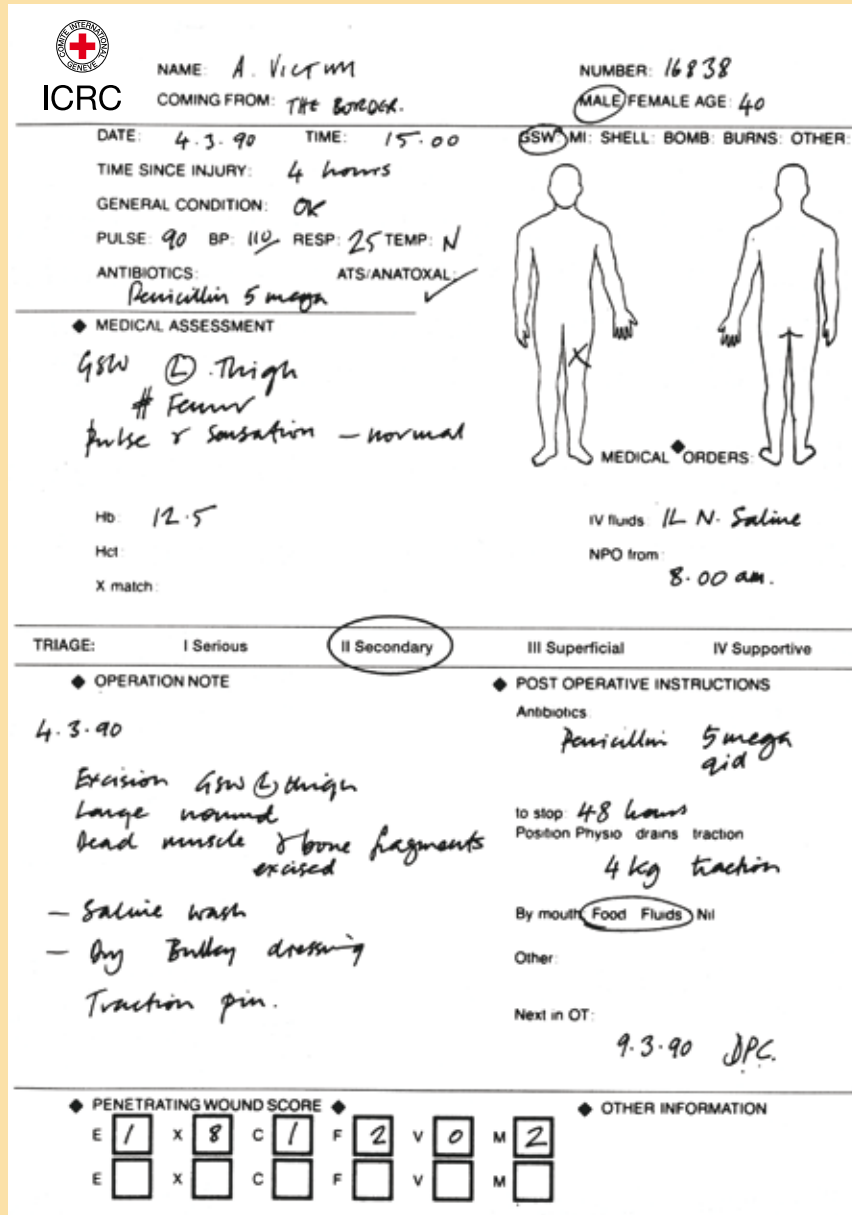 COMITE INTERNATIONAL GENEVE
ICRC
NAME: A. VICTIM
NUMBER: 16838
COMING FROM: THE BORDER.
MALE/FEMALE AGE: 40
DATE: 4.3.90 TIME: 15.00
GSW: MI: SHELL: BOMB: BURNS: OTHER:
TIME SINCE INJURY: 4 hours
GENERAL CONDITION: OK
PULSE: 90 BP: 110/ RESP: 25 TEMP: N
ANTIBIOTICS: ATS/ANATOXAL: ✓
Penicillin 5 mega
◆ MEDICAL ASSESSMENT
GSW Ⓛ Thigh
# Femur
Pulse & Sensation – normal
X
MEDICAL ◆ ORDERS:
Hb: 12.5
Hct:
X match:
IV fluids: 1L N. Saline
NPO from:
8.00 am.
TRIAGE: I Serious II Secondary III Superficial IV Supportive
◆ OPERATION NOTE
4.3.90
Excision GSW Ⓛ thigh
Large wound
Dead muscle & bone fragments
excised
– Saline wash
– Dry Bulky dressing
Traction pin.
◆ POST OPERATIVE INSTRUCTIONS
Antibiotics:
Penicillin 5 mega
qid
to stop: 48 hours
Position Physio drains traction
4 kg traction
By mouth Food Fluids Nil
Other:
Next in OT:
9.3.90 DPC.
◆ PENETRATING WOUND SCORE ◆
E 1 X 8 C 1 F 2 V 0 M 2
E X C F V M
◆ OTHER INFORMATION